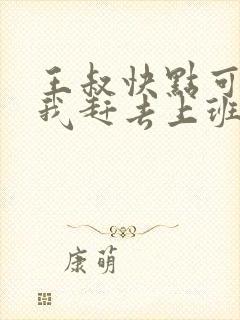 王叔快點可
我赶去上班
康萌